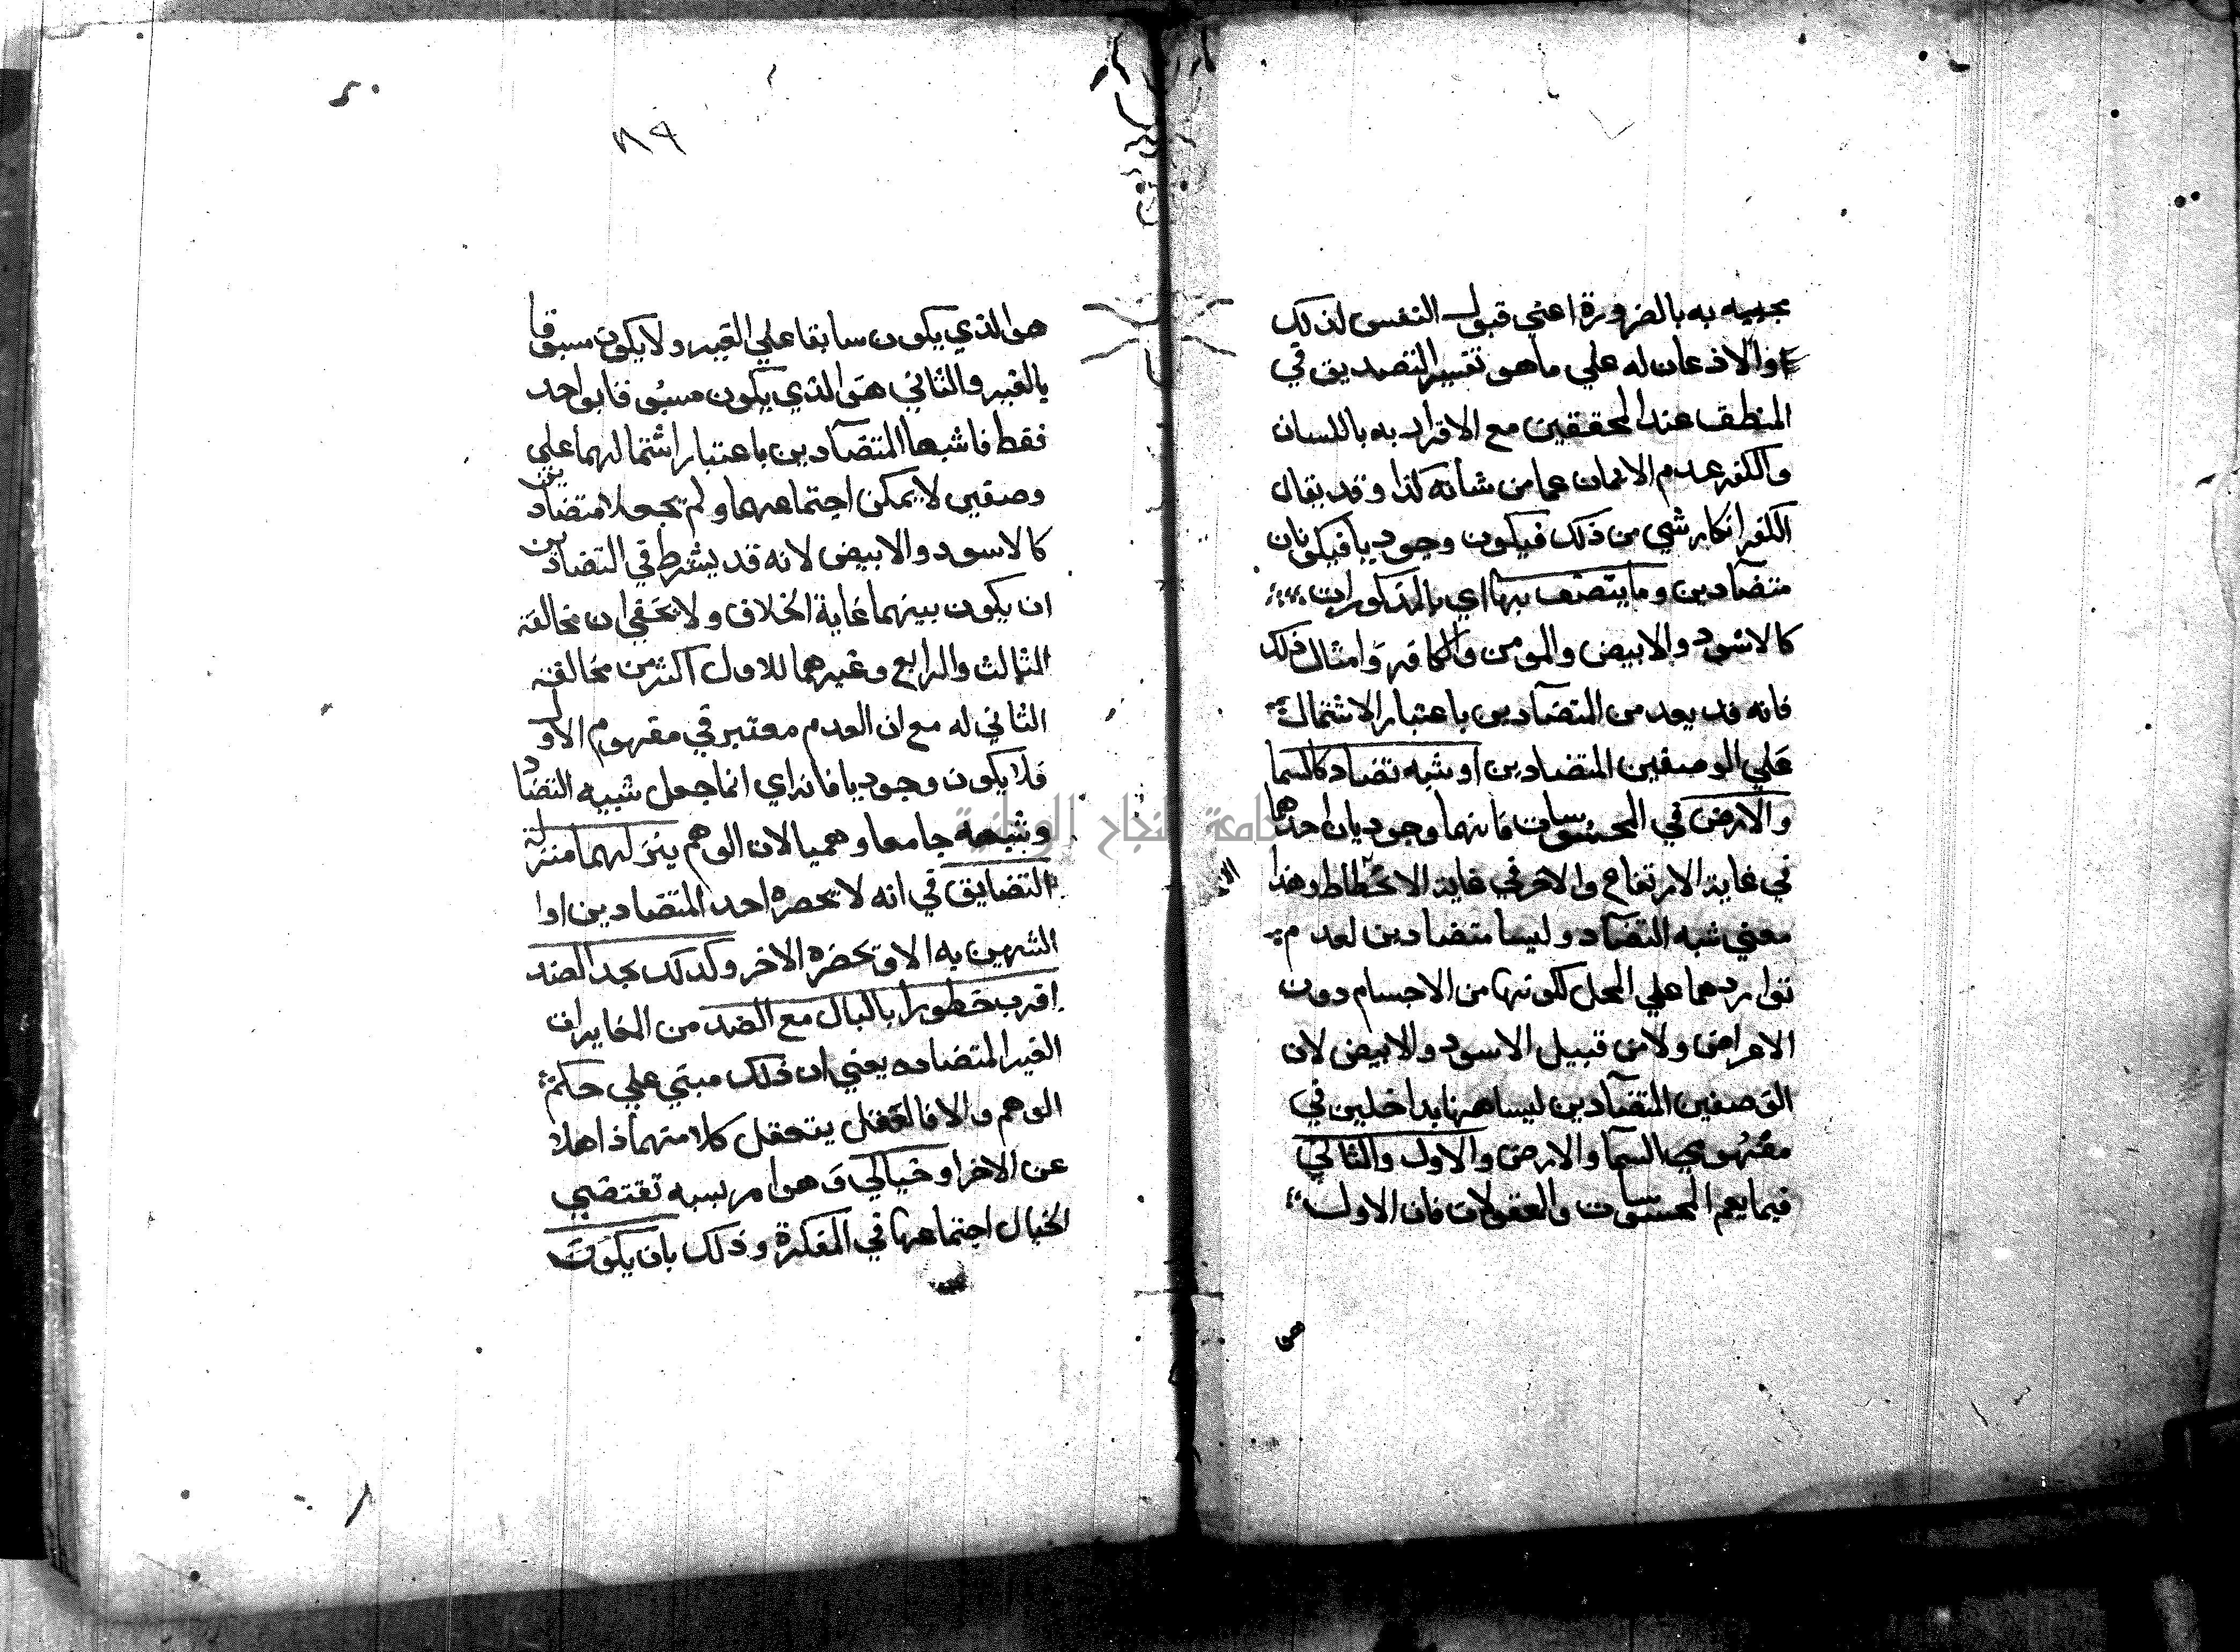 مجييه به بالضرورة اعني قبول النفس لذلك
والاذعان له علي ما هو تفسير التصديق في
المنطق عند المحققين مع الاقرار به باللسان
والكفر عدم الايمان عما من شانه كذا وقد يقال
الكفر انكار شي من ذلك فيكون وجوديا فيكونان
متضادين وما يتصف بها اي بالمذكورات
كالاسود والابيض والمومن والكافر وامثال ذلك
فانه قد يعد من المتضادين باعتبار الاشتمال
علي الوصفين المتضادين او شبه تضاد كالسما
والارض في المحسوسات فانهما وجوديان احدهما
في غاية الارتفاع والاخر في غاية الانحطاط وهذا
معني شبه التضاد وليسا متضادين لعدم
تواردهما علي المحل لكونهما من الاجسام دون
الاعراض ولا من قبيل الاسود والابيض لان
الوصفين المتضادين ليسا ههنا بداخلين في
مفهومي السما والارض والاول والثاني
فيما يعم المحسوسات والمعقولات فان الاول
هو
٨٩
هو الذي يكون سابقا علي الغير ولا يكون مسبوقا
بالغير والثاني هو الذي يكون مسبوقا بواحد
فقط فاشبها المتضادين باعتبار اشتمالهما علي
وصفين لا يمكن اجتماعهما ولم يجعلا متضادين
كالاسود والابيض لانه قد يشترط في المتضادين
ان يكون بينهما غاية الخلاف ولا يخفي ان مخالفة
الثالث والرابع وغيرهما للاول اكثر من مخالفة
الثاني له مع ان العدم معتبر في مفهوم الاول
فلا يكون وجوديا فانه اي انما جعل شبيه التضاد
وشبهه جامعا وهميا لان الوهم ينزلهما منزلة
التضايف في انه لا يحضره احد المتضادين او ا
الشبهين به الا ويحضره الاخر وكذلك تجد الضد
اقرب خطورا بالبال مع الضد من المغايرات
الغير المتضاده يعني ان ذلك مبني علي حكم
الوهم والا فالعقل يتعقل كلا منهما ذاهلا
عن الاخر او خيالي وهو امر بسببه تقتضي
الخيال اجتماعهما في المفكرة وذلك بان يكون